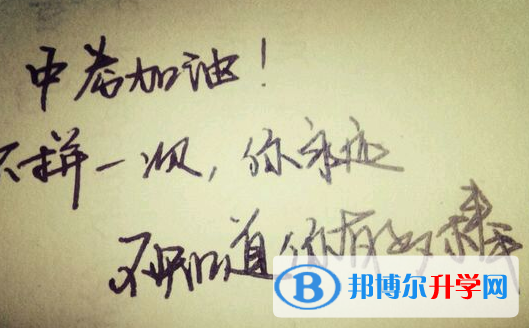 中考加油！
不拼一次，你永远
不知道你有多棒
邦博尔升学网